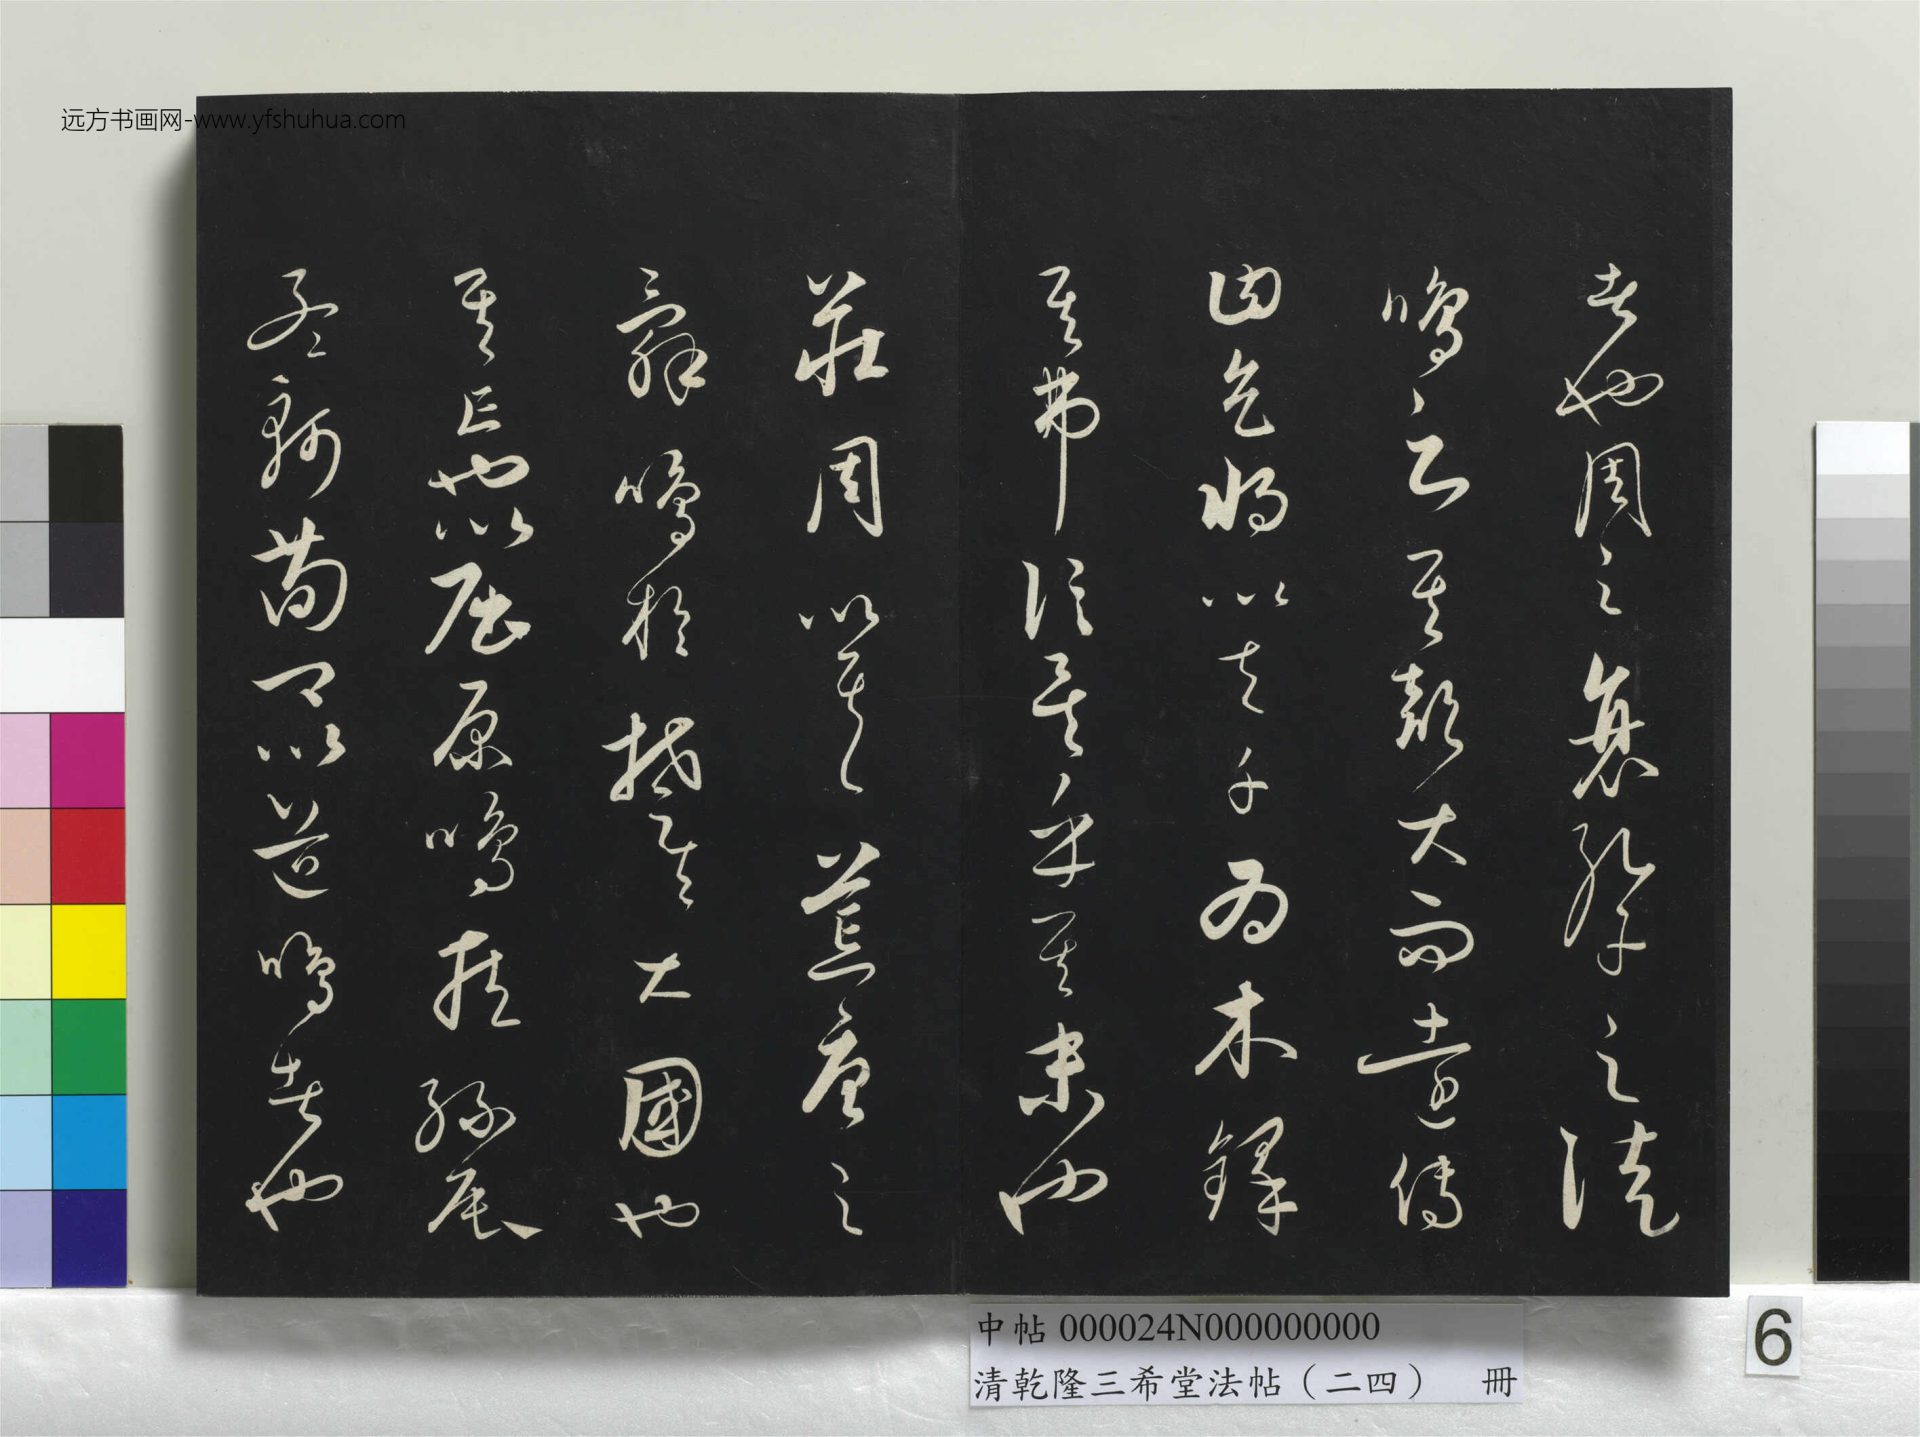 远方书画网-www.yfshuhua.com
者也周之衰孔子之徒
鳴之其聲大而遠傳
曰天將以夫子為木鐸
其弗信矣乎其末也
莊周以其荒唐之
辭鳴於楚楚大國也
其亡也以屈原鳴臧孫辰
孟軻荀卿以道鳴者也
中帖 000024N000000000
清乾隆三希堂法帖(二四) 冊
6